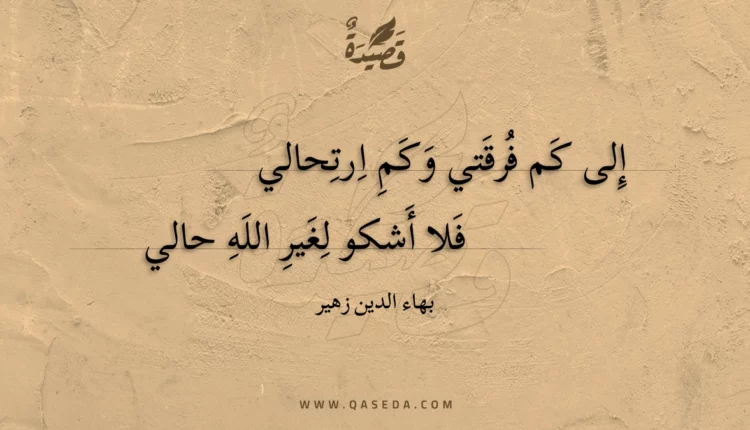 قَصِيدَةٌ
إِلى كَم فُرقَتي وَكَمِ اِرتِحالي
فَلا أَشكو لِغَيرِ اللَهِ حالي
بهاء الدين زهير
WWW.QASEDA.COM